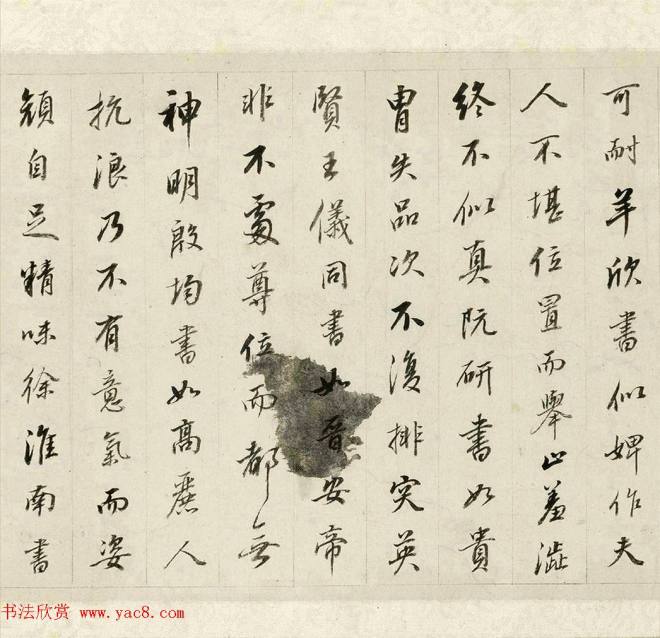 可耐羊欣書似婢作夫
人不堪位置而舉止羞澁
終不似真阮研書如貴
胄失品次不復排突英
賢王儀同書如晉安帝
非不處尊位而都無
神明殷均書如高麗人
抗浪乃不有意氣而姿
顏自足精味徐淮南書
书法欣赏 www.yac8.com